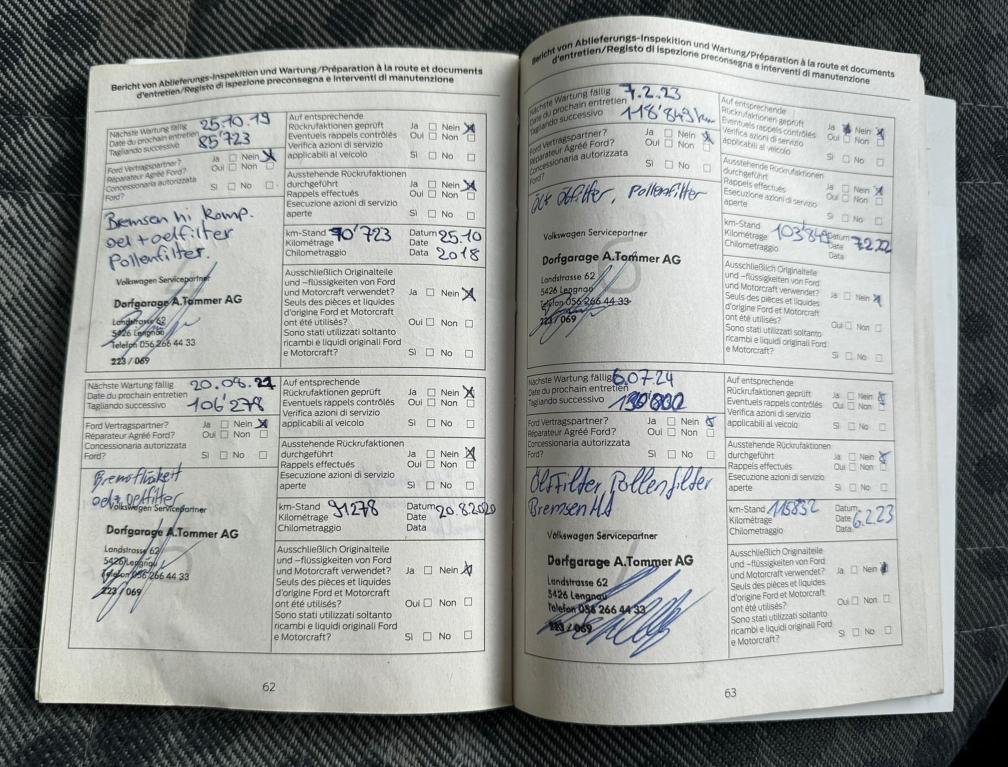 Bericht von Ablieferungs-Inspekition und Wartung/Préparation à la route et documents
d'entretien/Registo di ispezione preconsegna e interventi di manutenzione
Nächste Wartung fällig 25.10.19
Date du prochain entretien 85'723
Tagliando successivo
Ford Vertragspartner? Ja Nein
Réparateur Agréé Ford? Oui Non
Concessionaria autorizzata
Ford? Sì No
Bremsen hi komp.
oel + oelfilter
Pollenfilter.
Volkswagen Servicepartner
Dorfgarage A.Tommer AG
Landstrasse 62
5426 Lengnau
Telefon 056 266 44 33
223 / 069
Auf entsprechende
Rückrufaktionen geprüft Ja Nein
Eventuels rappels contrôlés Oui Non
Verifica azioni di servizio
applicabili al veicolo Sì No
Ausstehende Rückrufaktionen
durchgeführt Ja Nein
Rappels effectués Oui Non
Esecuzione azioni di servizio
aperte Sì No
km-Stand 70'723 Datum 25.10
Kilométrage Date 2018
Chilometraggio Data
Ausschließlich Originalteile
und -flüssigkeiten von Ford
und Motorcraft verwendet? Ja Nein
Seuls des pièces et liquides
d'origine Ford et Motorcraft
ont été utilisés? Oui Non
Sono stati utilizzati soltanto
ricambi e liquidi originali Ford
e Motorcraft? Sì No
Nächste Wartung fällig 20.08.21
Date du prochain entretien 106'278
Tagliando successivo
Ford Vertragspartner? Ja Nein
Réparateur Agréé Ford? Oui Non
Concessionaria autorizzata
Ford? Sì No
oelfilter
Volkswagen Servicepartner
Dorfgarage A.Tommer AG
Landstrasse 62
5426 Lengnau
Telefon 056 266 44 33
223 / 069
Auf entsprechende
Rückrufaktionen geprüft Ja Nein
Eventuels rappels contrôlés Oui Non
Verifica azioni di servizio
applicabili al veicolo Sì No
Ausstehende Rückrufaktionen
durchgeführt Ja Nein
Rappels effectués Oui Non
Esecuzione azioni di servizio
aperte Sì No
km-Stand 91278 Datum 20.8.2020
Kilométrage Date
Chilometraggio Data
Ausschließlich Originalteile
und -flüssigkeiten von Ford
und Motorcraft verwendet? Ja Nein
Seuls des pièces et liquides
d'origine Ford et Motorcraft
ont été utilisés? Oui Non
Sono stati utilizzati soltanto
ricambi e liquidi originali Ford
e Motorcraft? Sì No
62
Bericht von Ablieferungs-Inspekition und Wartung/Préparation à la route et documents
d'entretien/Registo di ispezione preconsegna e interventi di manutenzione
Nächste Wartung fällig 7.2.23
Date du prochain entretien 118'849 km
Tagliando successivo
Ford Vertragspartner? Ja Nein
Réparateur Agréé Ford? Oui Non
Concessionaria autorizzata
Ford? Sì No
Ölfilter, Pollenfilter
Volkswagen Servicepartner
Dorfgarage A.Tommer AG
Landstrasse 62
5426 Lengnau
Telefon 056 266 44 33
223 / 069
Auf entsprechende
Rückrufaktionen geprüft Ja Nein
Eventuels rappels contrôlés Oui Non
Verifica azioni di servizio
applicabili al veicolo Sì No
Ausstehende Rückrufaktionen
durchgeführt Ja Nein
Rappels effectués Oui Non
Esecuzione azioni di servizio
aperte Sì No
km-Stand 103'849 Datum 7.2.22
Kilométrage Date
Chilometraggio Data
Ausschließlich Originalteile
und -flüssigkeiten von Ford
und Motorcraft verwendet? Ja Nein
Seuls des pièces et liquides
d'origine Ford et Motorcraft
ont été utilisés? Oui Non
Sono stati utilizzati soltanto
ricambi e liquidi originali Ford
e Motorcraft? Sì No
Nächste Wartung fällig 6.07.24
Date du prochain entretien
Tagliando successivo
Ford Vertragspartner? Ja Nein
Réparateur Agréé Ford? Oui Non
Concessionaria autorizzata
Ford? Sì No
Pollenfilter
Bremsen
Volkswagen Servicepartner
Dorfgarage A.Tommer AG
Landstrasse 62
5426 Lengnau
Telefon 056 266 44 33
223 / 069
Auf entsprechende
Rückrufaktionen geprüft Ja Nein
Eventuels rappels contrôlés Oui Non
Verifica azioni di servizio
applicabili al veicolo Sì No
Ausstehende Rückrufaktionen
durchgeführt Ja Nein
Rappels effectués Oui Non
Esecuzione azioni di servizio
aperte Sì No
km-Stand 115832 Datum
Kilométrage Date 6.2.23
Chilometraggio Data
Ausschließlich Originalteile
und -flüssigkeiten von Ford
und Motorcraft verwendet? Ja Nein
Seuls des pièces et liquides
d'origine Ford et Motorcraft
ont été utilisés? Oui Non
Sono stati utilizzati soltanto
ricambi e liquidi originali Ford
e Motorcraft? Sì No
63